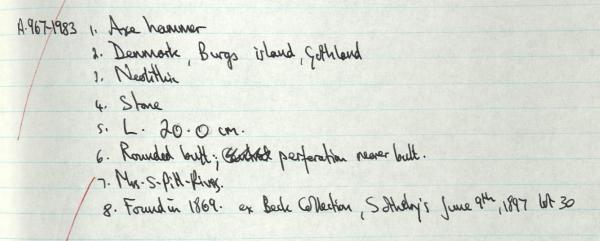 A.967-1983 1. Axe hammer
2. Denmark, Burgs island, Gothland
3. Neolithic
4. Stone
5. L. 20.0 cm.
6. Rounded butt; perforation nearer butt.
7. Mrs. S. Pitt-Rivers.
8. Found in 1869. ex Beck Collection, Sotheby's June 9th, 1897 lot 30